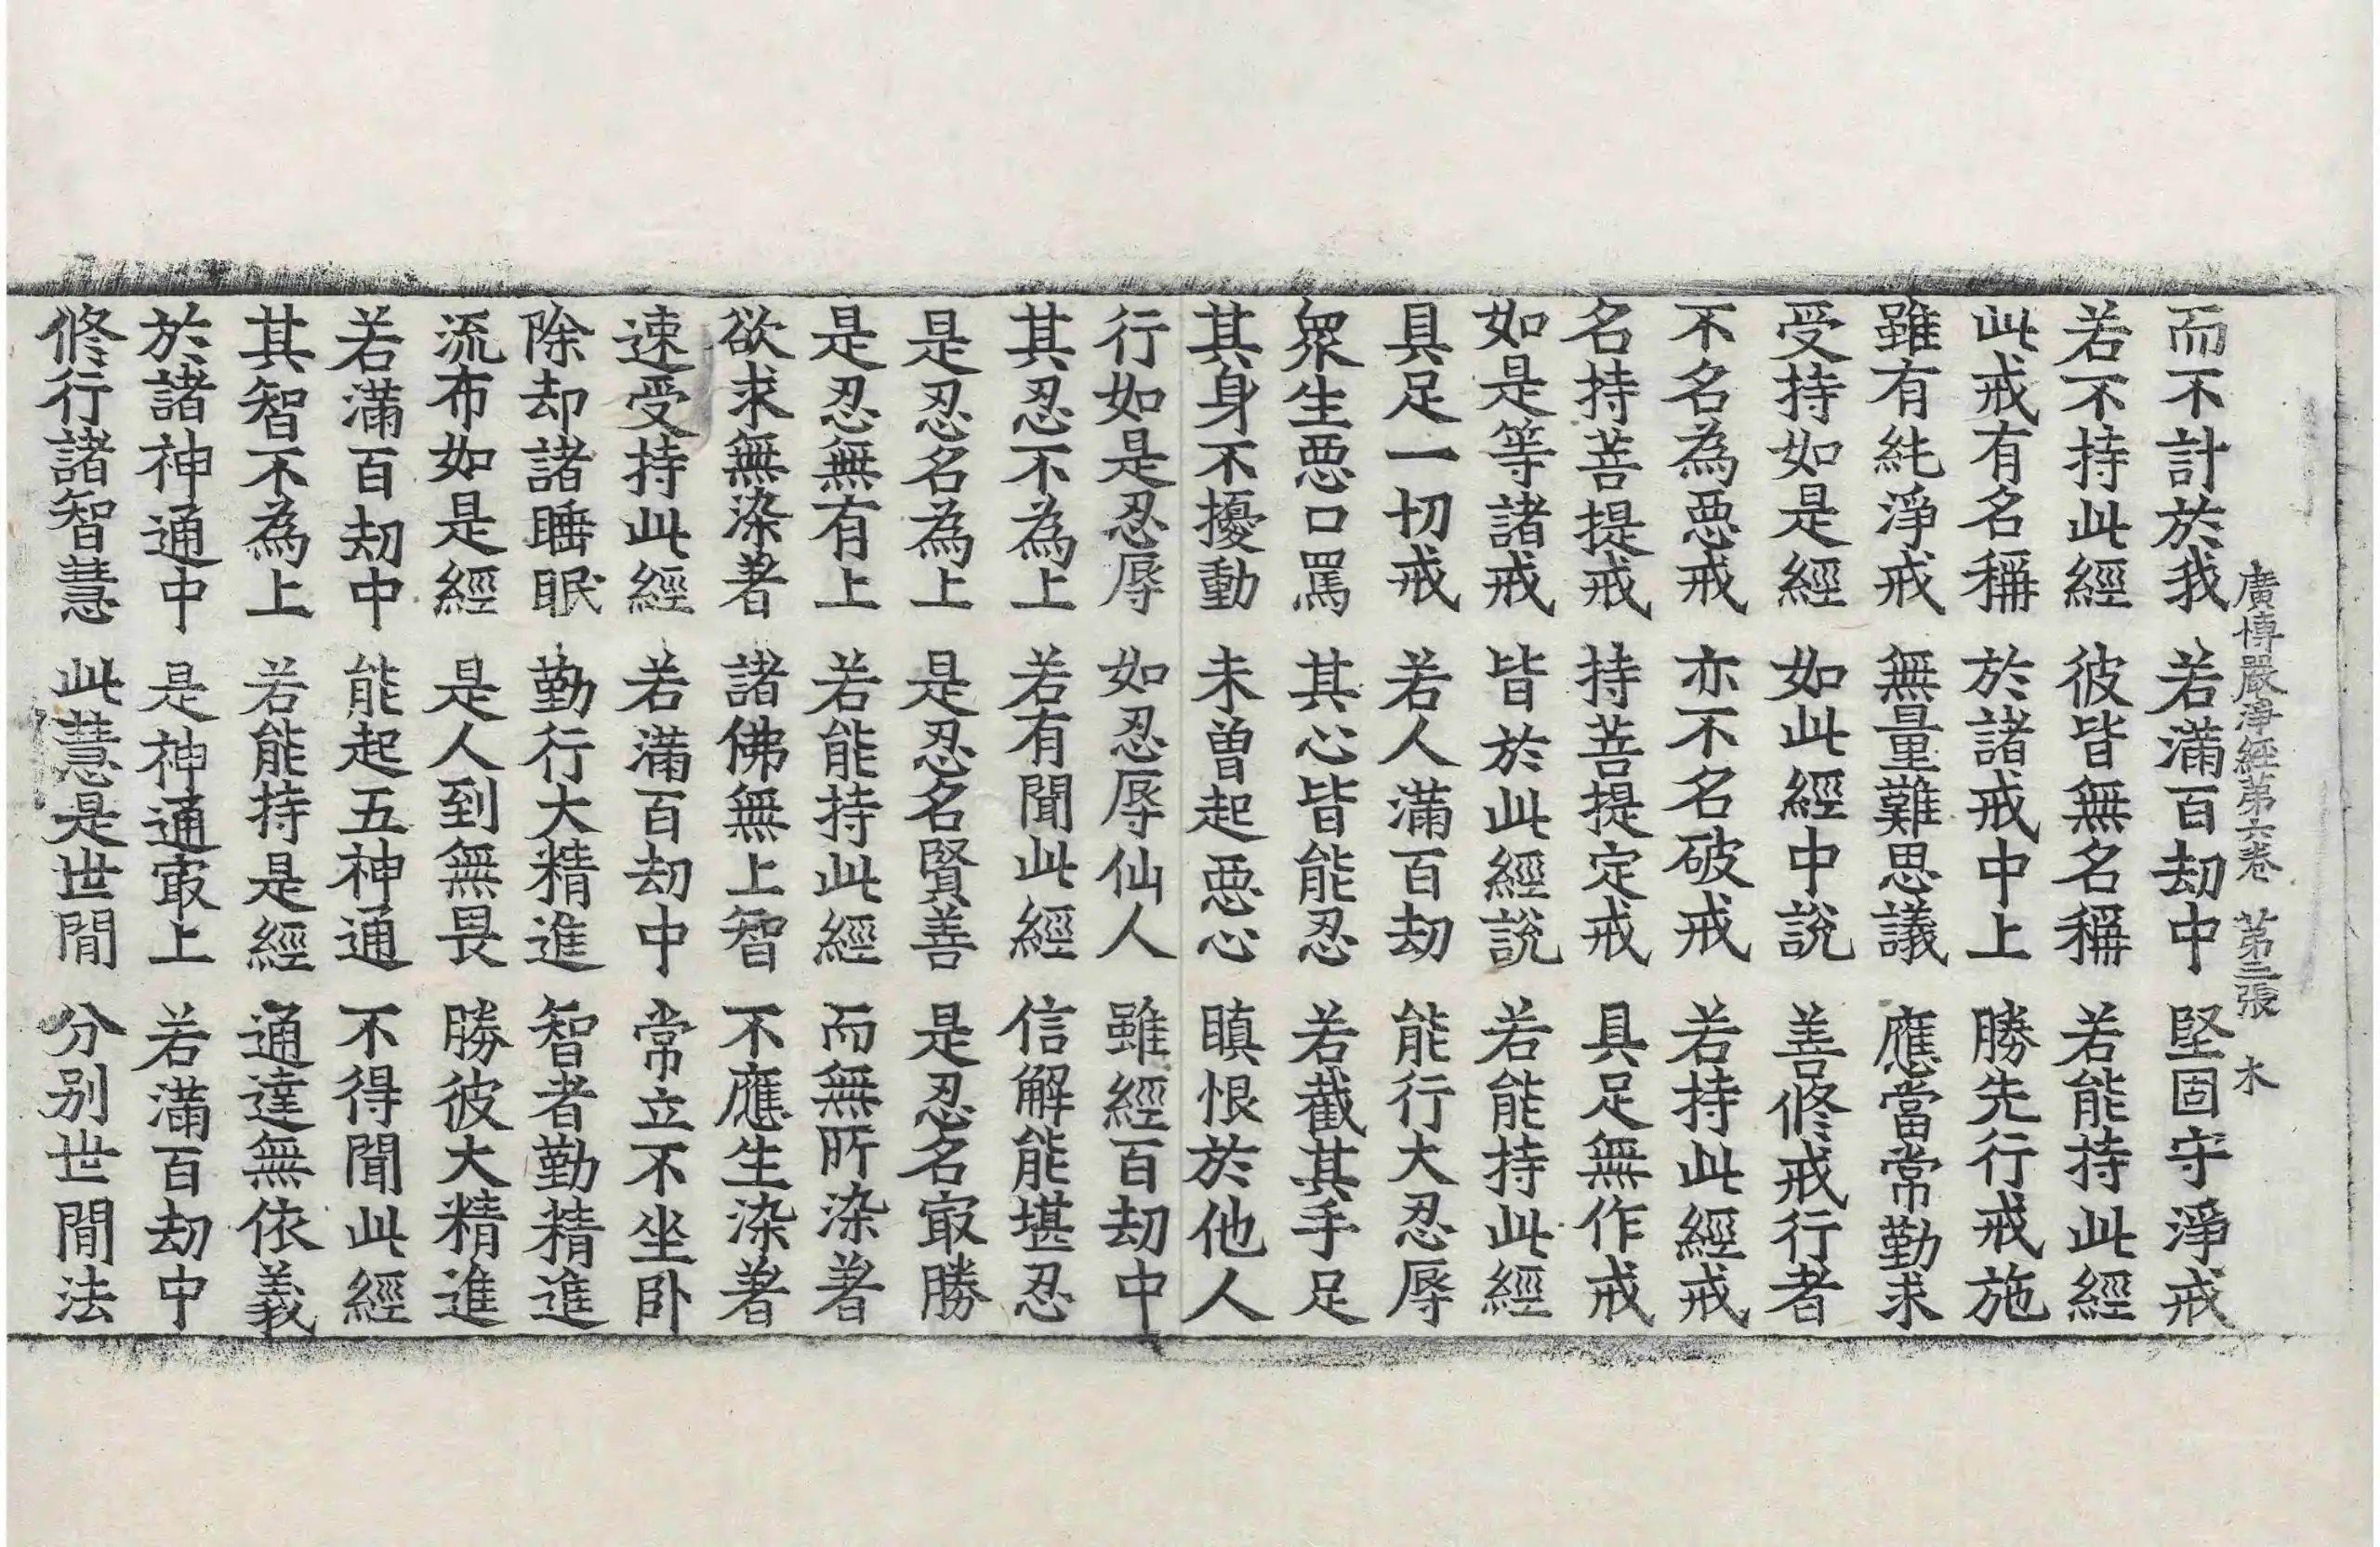 廣博嚴淨經第六卷 第三張 木
而不計於我 若滿百劫中 堅固守淨戒
若不持此經 彼皆無名稱 若能持此經
此戒有名稱 於諸戒中上 勝先行戒施
雖有純淨戒 無量難思議 應當常勤求
受持如是經 如此經中說 善修戒行者
不名為惡戒 亦不名破戒 若持此經戒
名持菩提戒 持菩提定戒 具足無作戒
如是等諸戒 皆於此經說 若能持此經
具足一切戒 若人滿百劫 能行大忍辱
眾生惡口罵 其心皆能忍 若截其手足
其身不擾動 未曾起惡心 瞋恨於他人
行如是忍辱 如忍辱仙人 雖經百劫中
其忍不為上 若有聞此經 信解能堪忍
是忍名為上 是忍名賢善 是忍名㝡勝
是忍無有上 若能持此經 而無所染著
欲求無染著 諸佛無上智 不應生染著
速受持此經 若滿百劫中 常立不坐臥
除却諸睡眠 勤行大精進 智者勤精進
流布如是經 是人到無畏 勝彼大精進
若滿百劫中 能起五神通 不得聞此經
其智不為上 若能持是經 通達無依義
於諸神通中 是神通㝡上 若滿百劫中
修行諸智慧 此慧是世間 分別世間法